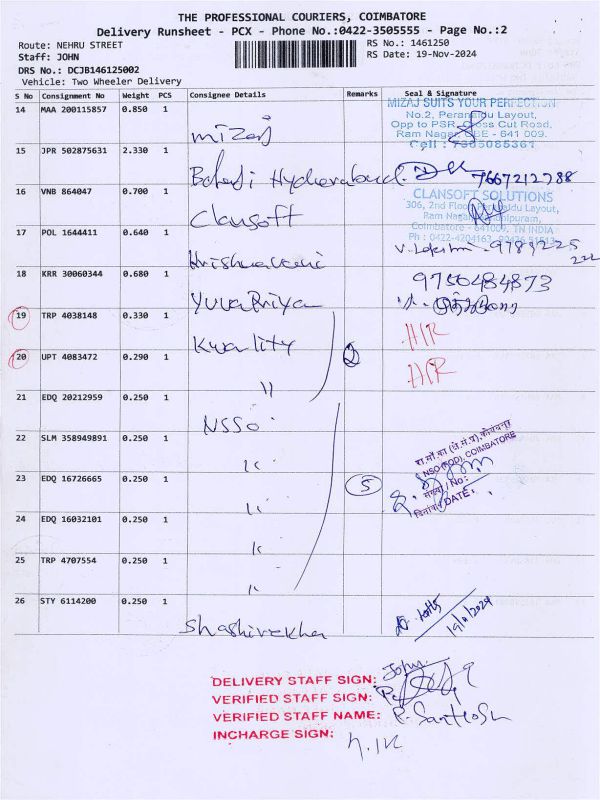 THE PROFESSIONAL COURIERS, COIMBATORE
Delivery Runsheet - PCX - Phone No.:0422-3505555 - Page No.:2
Route: NEHRU STREET
RS No.: 1461250
Staff: JOHN
RS Date: 19-Nov-2024
DRS No.: DCJB146125002
Vehicle: Two Wheeler Delivery
S No Consignment No Weight PCS Consignee Details Remarks Seal & Signature
14 MAA 200115857 0.850 1 mizaj
MIZAJ SUITS YOUR PERFECTION
No.2, Peranaidu Layout,
Opp to PSR, Cross Cut Road,
Ram Nagar, CBE - 641 009.
Cell : 7305085361
15 JPR 502875631 2.330 1 Balaji Hyderabad 7667212788
16 VNB 864047 0.700 1 Clansoft
CLANSOFT SOLUTIONS
306, 2nd Floor, Peranaidu Layout,
Ram Nagar, Gandhipuram,
Coimbatore - 641009, TN INDIA
Ph : 0422-4204162,
17 POL 1644411 0.640 1 Krishnaveni V. Lakshmi 9789225
222
18 KRR 30060344 0.680 1 YuvaPriya 9750484873
19 TRP 4038148 0.330 1 Kwality H/R
20 UPT 4083472 0.290 1 " 2 H/R
21 EDQ 20212959 0.250 1 NSSO
22 SLM 358949891 0.250 1 "
NSO (FOD), COIMBATORE
No:
DATE:
23 EDQ 16726665 0.250 1 " 5
24 EDQ 16032101 0.250 1 "
25 TRP 4707554 0.250 1 "
26 STY 6114200 0.250 1 Shashirekha 19/11/2024
DELIVERY STAFF SIGN: John
VERIFIED STAFF SIGN:
VERIFIED STAFF NAME: P. Santhosh
INCHARGE SIGN: